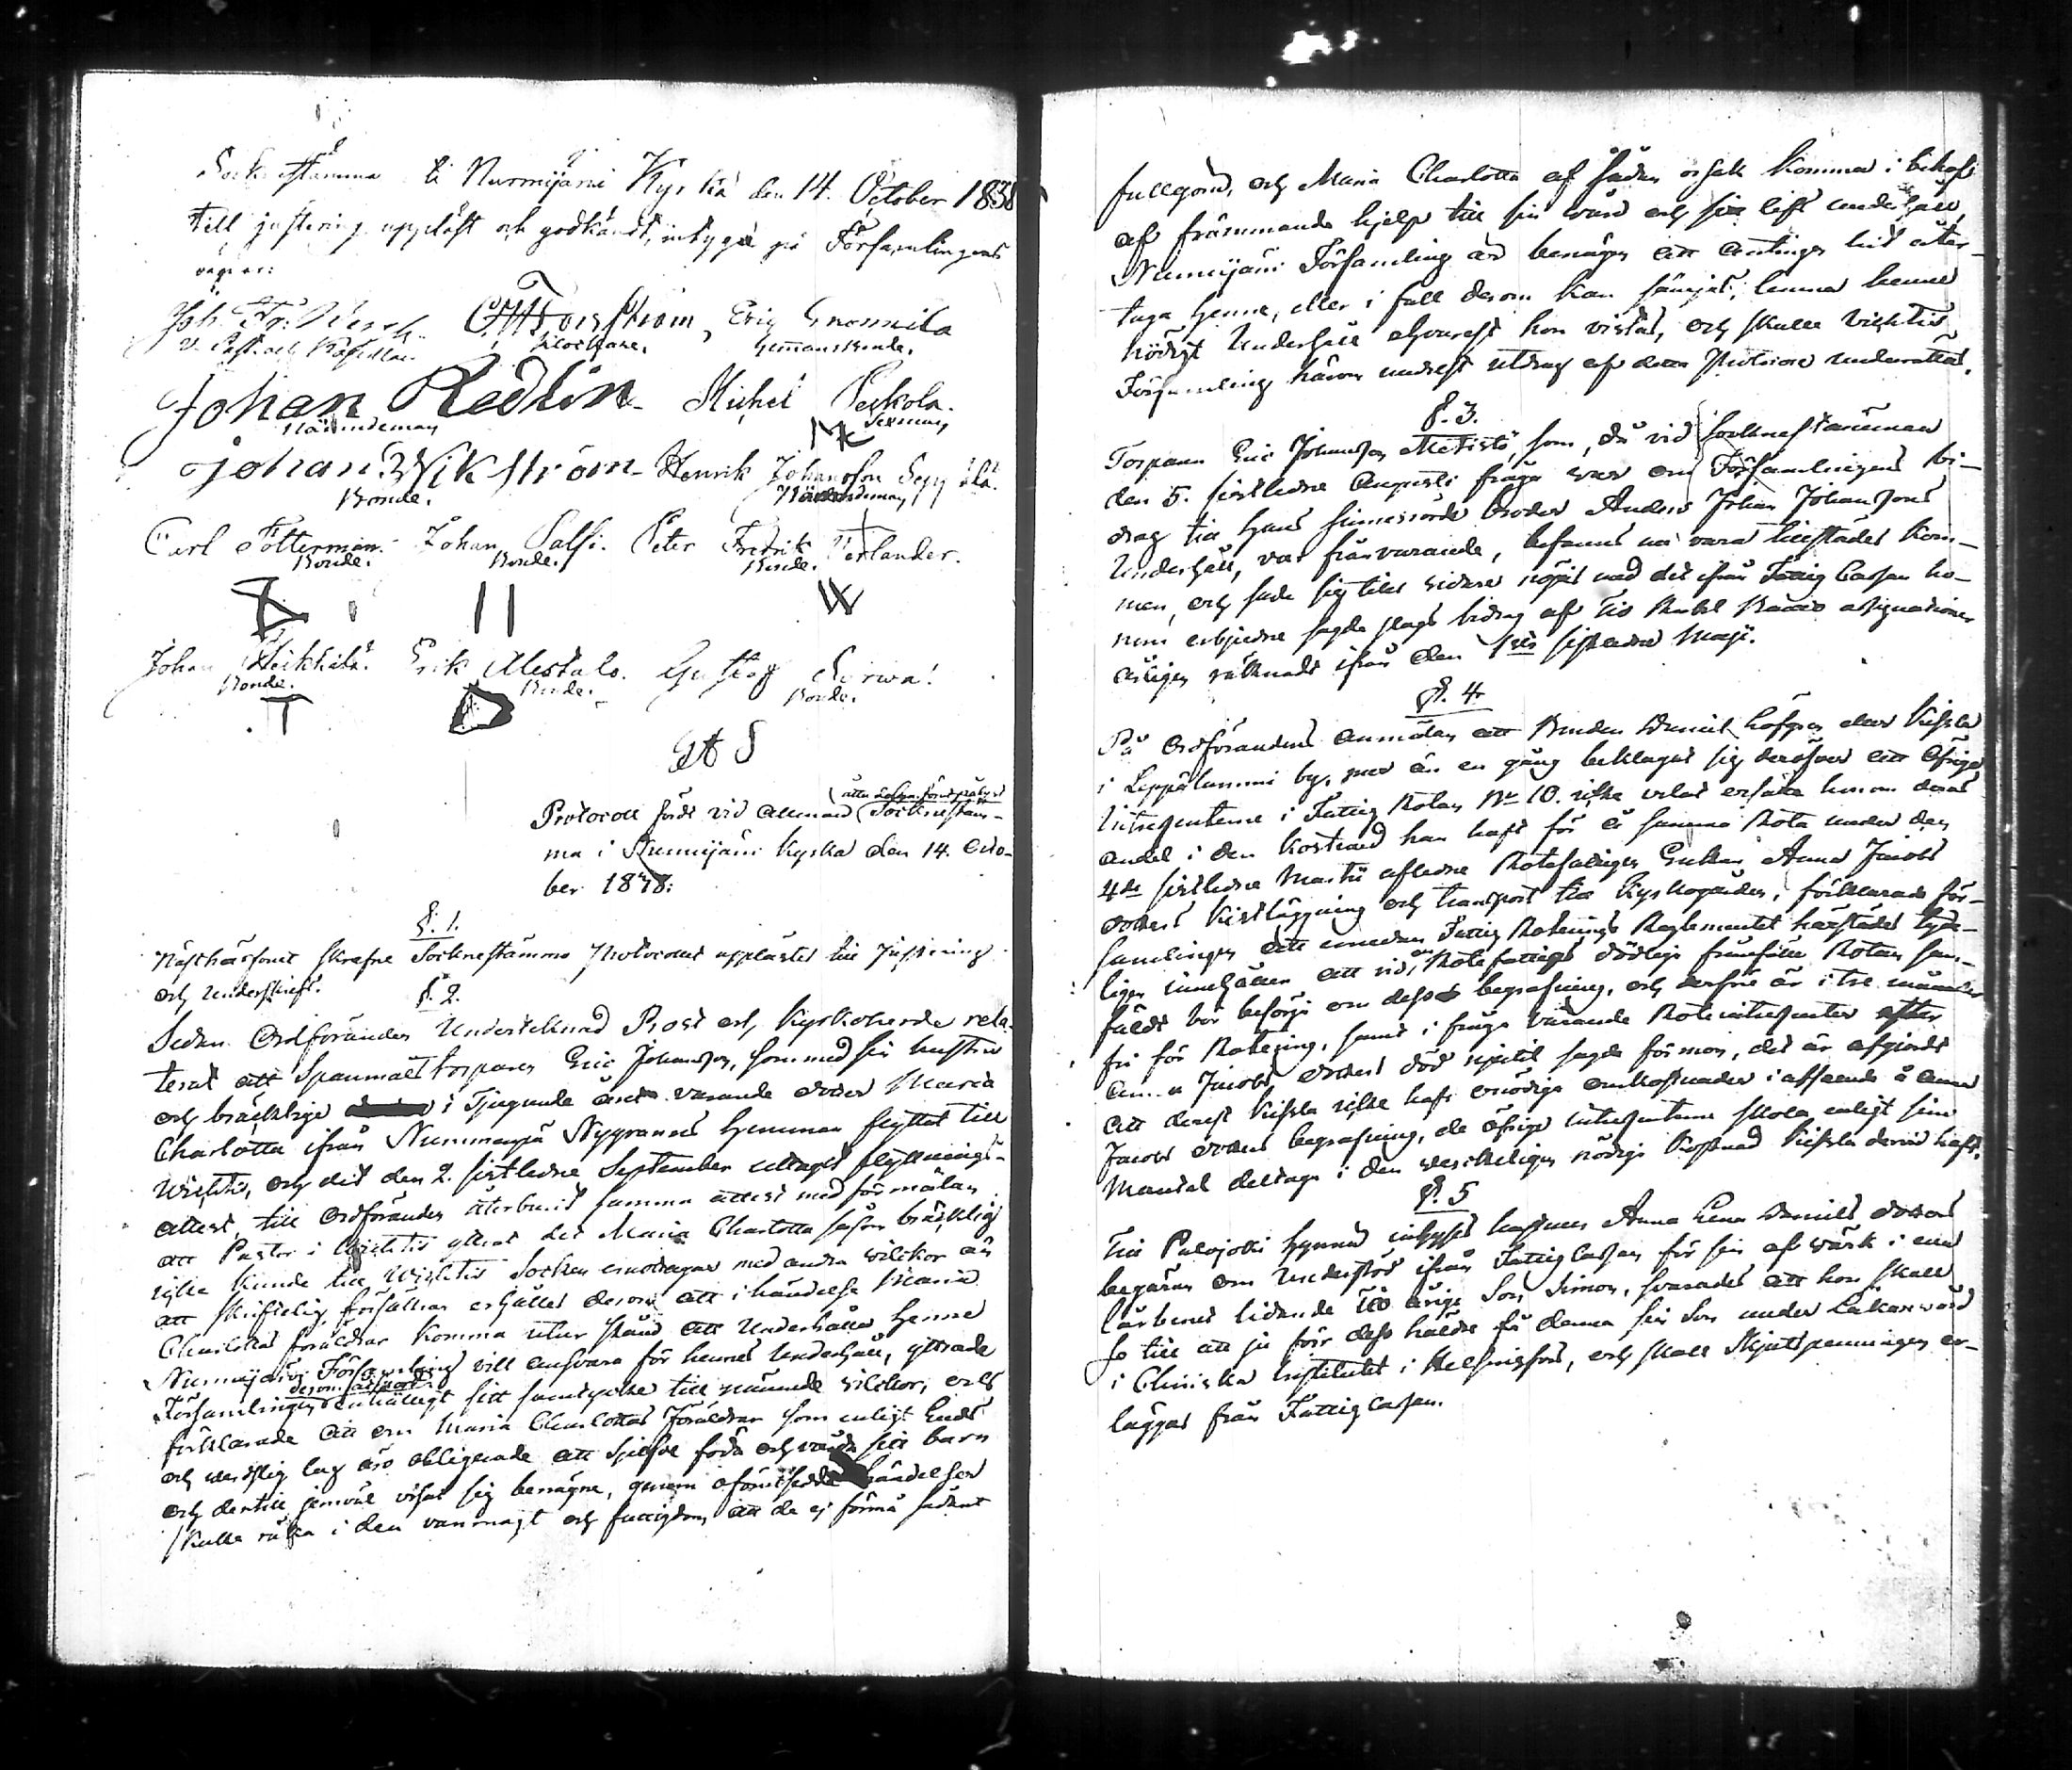 Sockenstämma i Nurmijärvi Kyrka den 14. October 1838
till justering uppläst och godkändt, intyga på Församlingens
vägnar:
Joh. Fr.
V. Past. och Kapellan.
Klockare.
Eric
Hemmansbonde.
Johan Redlin
Nämndeman
Michel Perkola.
Sexman
Johan Wikström
Bonde.
Henrik Johansson Seppälä.
Nämndeman
Carl Fotterman.
Bonde.
Johan Palsi.
Bonde.
Peter Fredrik Verlander.
Bonde.
Johan Heikkilä.
Bonde.
Erik Alestalo.
Bonde.
Gustaf
Bonde.
Protocoll fördt vid allmänn Sockenstäm-
åtta dagar förut pålyst
ma i Nurmijärvi Kyrka den 14. Octo-
ber 1838:
§. 1.
Näst härförut skrefne Sockenstämmo Protocoll upplästes till justering
och underskrift.
§. 2.
Sedan Ordföranden Undertecknad Prost och Kyrkoherde rela-
terat att Spannmåls torparen Eric Johansson, som med sin hustru
och bräcklige i Tjugunde året varande dotter Maria
Charlotta ifrån Nummenpää Nygrannas hemman flyttat till
Wichtis, och dit den 2. sistledne September uttagit flyttnings-
attest, till Ordföranden återburit samma attest med förmälan
att Pastor i Wichtis yttrat det Maria Charlotta såsom bräcklig
icke kunde till Wichtis Socken emottagas med andra vilckor än
att skriftelig försäkran erhålles derom att i händelse Maria
Charlottas föräldrar komma utur stånd att underhålla henne
Nurmijärvi Församling vill ansvara för hennes underhåll, yttrade
Församlingen enhälligt sitt samtycke till nämnde vilckor, och
förklarade att om Maria Charlottas Föräldrar som enligt Guds
och werdslig lag äro obligerade att sjelfve föda och vårda sitt barn
och dertill jemväl visat sig benägne, genom oförutsedda händelser
skulle råka i den vanmagt och fattigdom att de ej förmå sådant
fullgöra, och Maria Charlotta af sådan orsak komma i behof
af främmande hjelp till sin wård och sitt lifs underhåll,
Nurmijärvi Församling är benägen att antingen hit åter-
taga henne, eller i fall derom kan sämjas, lemna henne
nödigt Underhåll hvarest hon vistas, och skulle Wichtis
Församling härom medelst utdrag af detta Protocoll underrättas.
§. 3.
Torparen Eric Johansson Metsistö, som, då vid Sockenstämman
den 5. sistledne Augusti fråga war om Församlingens bi-
drag till hans sinnesrörde broder Anders Johan Johanssons
Underhåll, var frånvarande, befanns nu vara tillstädes kom-
men, och sade sig tills vidare nöjd med det ifrån Fattig Cassan ho-
nom erbjudne sagde slags bidrag af Tio Rubel Banco assignationer
årligen räknadt ifrån den 1sta sistledne Maji.
§. 4.
På Ordförandens anmälan att Bonden Daniel Löfgren eller Kissla
i Leppälammi by, mer än en gång beklagat sig deröfver att öfrige
Intressenterne i Fattig Rotan No 10. icke velat ersätta honom deras
andel i den kostnad han haft för å samma Rota under den
4de sistledne Martii aflidne Rotefattigen Enkan Anna Jacobs
dotters kistläggning och transport till Kyrkogården, förklarade För-
samlingen att emedan Fattig Rotenings Reglementet härstädes tyde-
ligen innehåller att vid Rotefattigs dödliga frånfälle Rotan sam-
fäldt bör besörja om dess begrafning, och derföre är i tre månader
fri för Rotering, samt i fråga varande Roteintressenter efter
Anna Jacobs dotters död njutit sagde förmon, det är afgjordt
att derest Kissla icke haft onödiga omkostnader i afseende å Anna
Jacobs dotters begrafning, de öfrige intressenterne skola enligt sina
Mantal deltaga i den werckeligen nödiga kostnad Kissla dervid haft.
§. 5
Till Palojoki hemmans inhyses hustrus Anna Lena Daniels dotters
begäran om Understöd ifrån Fattig Cassan för sin af värk i ena
lårbenet lidande årige Son Simon, svarades att hon skall
se till att ju förr dess häldre få denna sin Son under Läkarewård
i Cliniska Institutet i Helsingfors, och skall Skjutspenningen er-
läggas från Fattig Cassan.